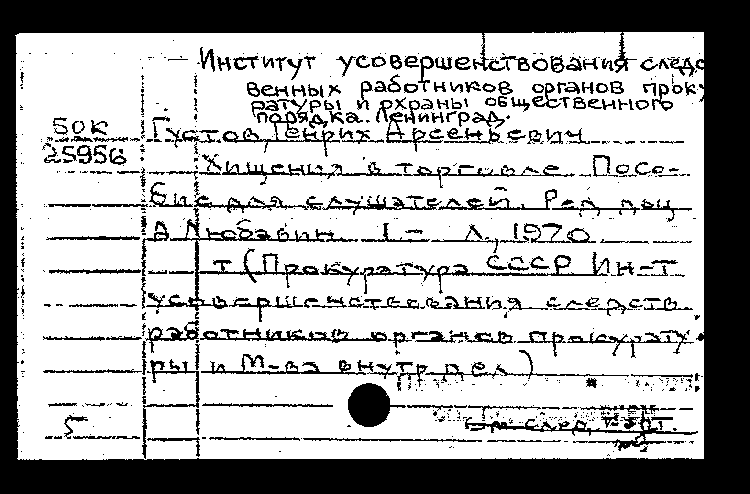 Институт усовершенствования следс
венных работников органов проку
ратуры и охраны общественного
порядка. Ленинград.
БОК Густов, Генрих Арсеньевич
25956 Хищения в торговле Посо-
бие для слушателей. Ред. доц
А Любавин 1 - Л., 1970.
т (Прокуратура СССР Ин-т
усовершенствования следств
работников органов прокурату
ры и М-ва внутр дел)
5 См. след. карт.